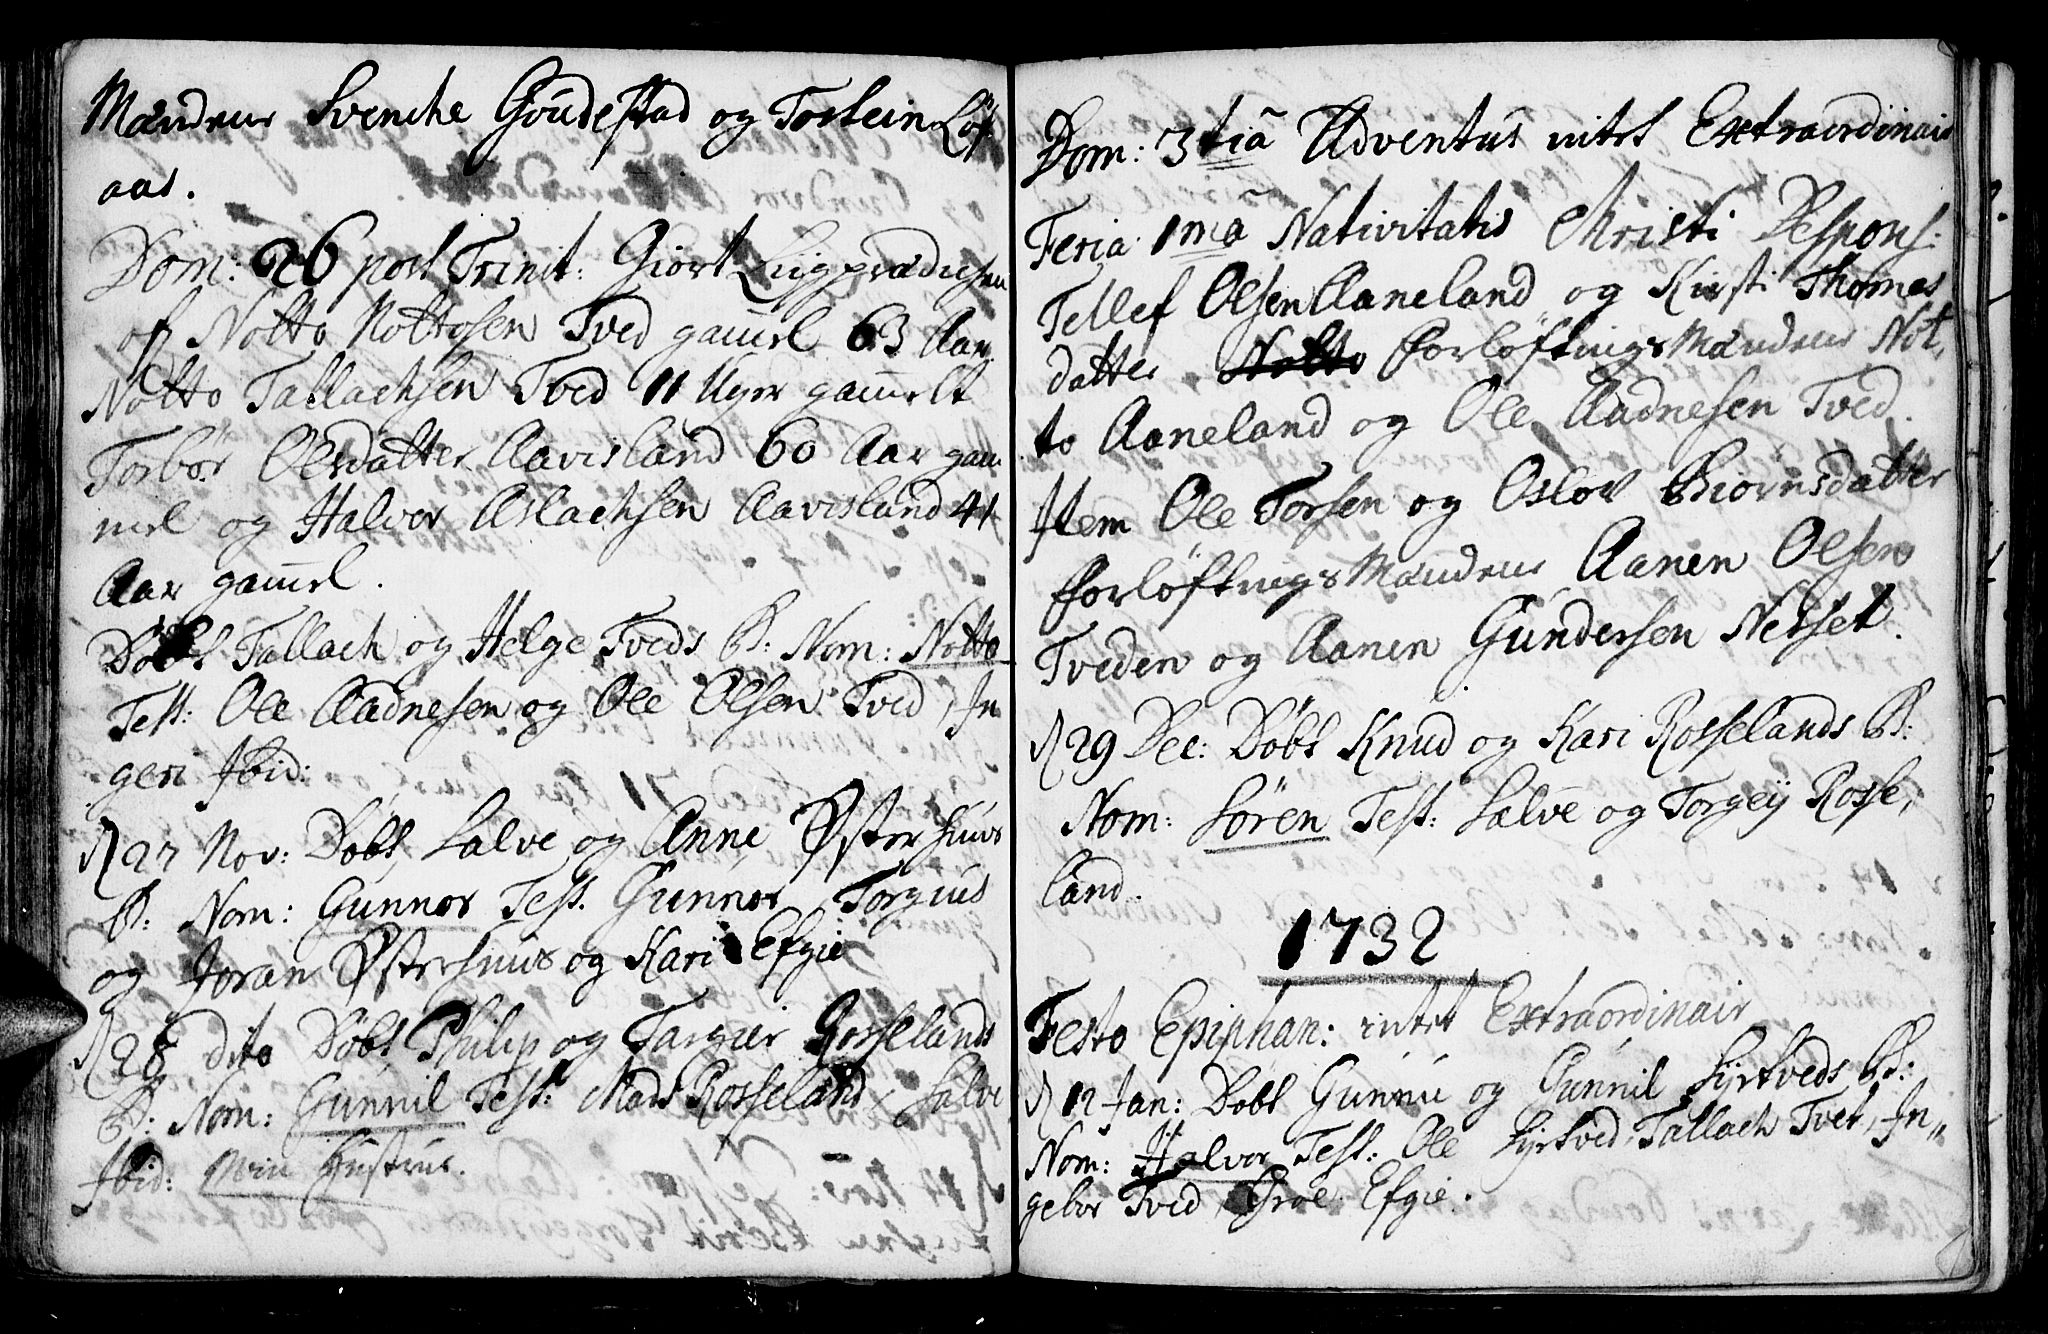 Mændene Svenche Goudestad og Tostein Løf
aas.
Dom: 26 post Trinit: Giort Liigprædichen
of Notto Nottosen Tved gamel 63 Aar
Notto Tallachsen Tved 11 Uger gamelt
Torbor Olsdatter Aavisland 60 Aar gam
mel og Halvor Aslachsen Aavisland 41
Aar gamel.
Døbt Tallach og Helge Tveds B: Nom: Notto
Test: Ole Aadnesen og Ole Olsen Tved, In
geri Ibid:
d 27 Nov: Døbt Salve og Anne Østerhuus
B: Nom: Gunnor Test. Gunnor, Torgius
og Joran Østerhuus og Kari Efgie
d 28 dito Døbt Philip og Targier Rosselands
B: Nom: Gunnil Test: Mads Rosseland, Salve
Ibid: Min Hustrue.
Dom: 3tiã Adventus intet Extraordinair
Feria 1mã Nativitatis Christi Despons:
Tellef Olsen Aaneland og Kirsti Thomas
datter Notto Forløftnings Mændene Not,
to Aaneland og Ole Aadnesen Tved.
Item Ole Torsen og Oslov Biørnsdatter
Forløftnings Mændene Aanen Olsen
Tveden og Aanen Gundersen Netset.
d 29 Dec: Døbt Knud og Kari Rosselands B:
Nom: Søren Test: Salve og Torgey Rosse,
land.
1732
Festo Epiphan: intet Extraordinair
d 12 Jan: Døbt Gunnu og Gunnil Lyrtveds B:
Nom: Halvor Test: Ole Lyrtved, Tallach Tvet, In,,
gebor Tved, Øroe Efgie.